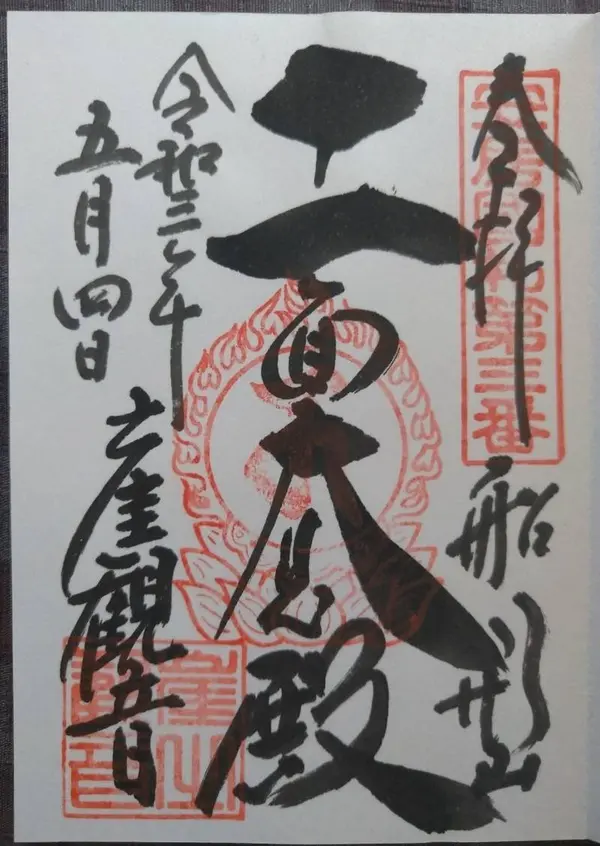 奉拝
安房国札第三番
船形山
十一面大悲殿
令和三年
五月四日
崖観音
崖之
観音